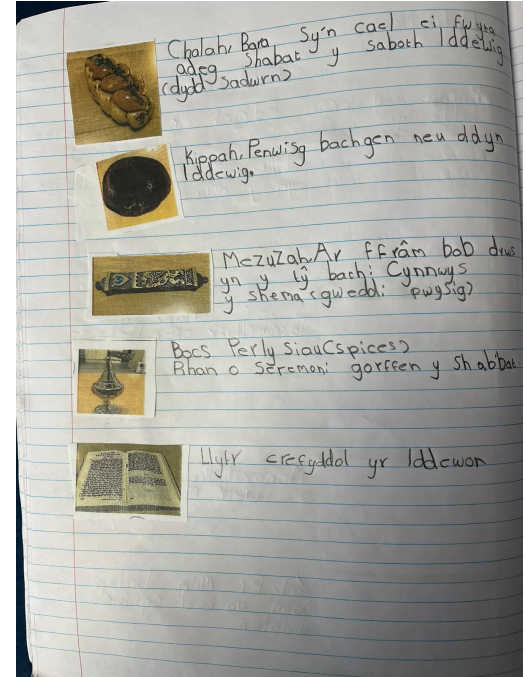 Chalah, Bara Sy'n cael ei fwyta
adeg Shabat y saboth Iddewig
(dydd Sadwrn)
Kippah, Penwisg bachgen neu ddyn
Iddewig.
Mezuzah, Ar ffrâm bob drws
yn y tŷ bach: Cynnwys
y shema (gweddi pwysig)
Bocs Perlysiau (spices)
Rhan o Seremoni gorffen y Shabbat
Llyfr crefyddol yr Iddewon